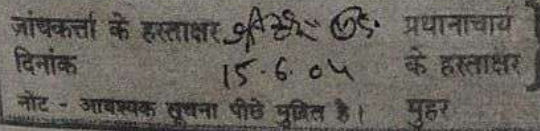 जांचकर्त्ता के हस्ताक्षर प्रधानाचार्य
दिनांक 15.6.04 के हस्ताक्षर
नोट - आवश्यक सूचना पीछे मुद्रित है। मुहर